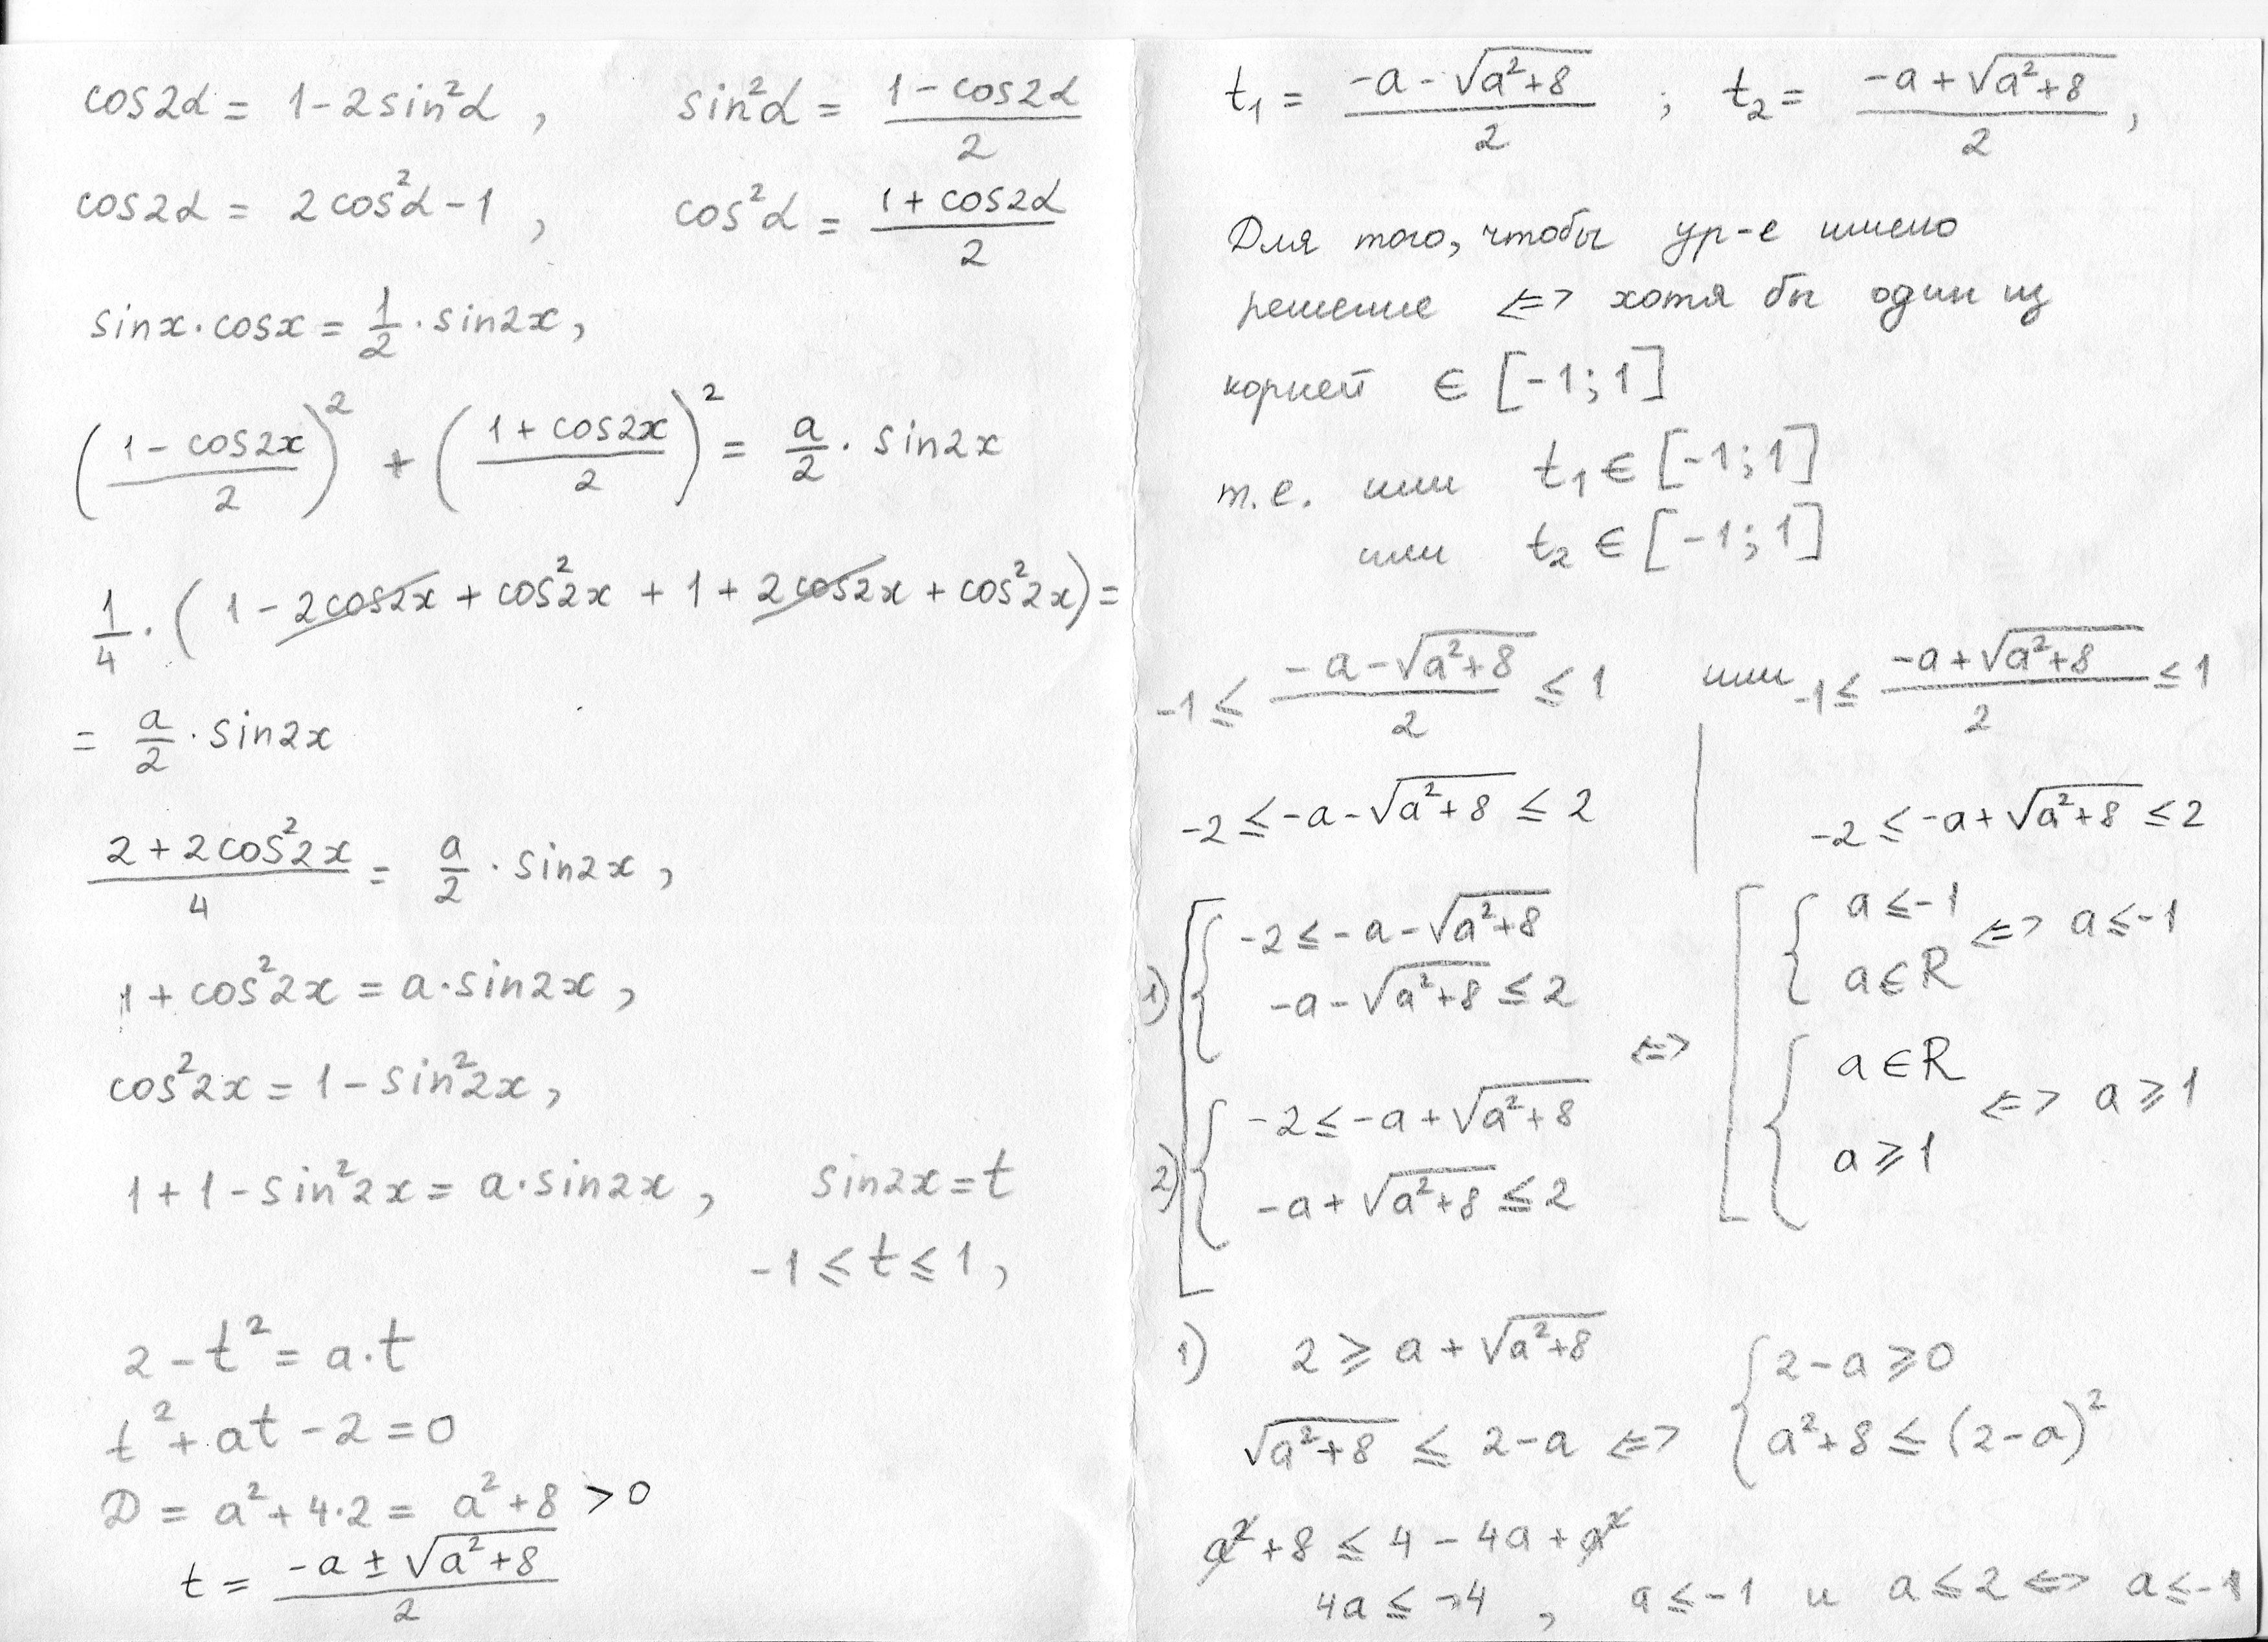 cos2α = 1-2sin²α , sin²α = (1-cos2α)/2
cos2α = 2cos²α-1 , cos²α = (1+cos2α)/2
sinx·cosx = 1/2 · sin2x,
((1-cos2x)/2)² + ((1+cos2x)/2)² = a/2 · sin2x
1/4 · (1 - 2cos2x + cos²2x + 1 + 2cos2x + cos²2x) =
= a/2 · sin2x
(2+2cos²2x)/4 = a/2 · sin2x ,
1+cos²2x = a·sin2x ,
cos²2x = 1-sin²2x ,
1+1-sin²2x = a·sin2x , sin2x = t
-1 ≤ t ≤ 1 ,
2-t² = a·t
t²+at-2=0
D = a²+4·2 = a²+8 >0
t = (-a±√(a²+8))/2
t₁ = (-a-√(a²+8))/2 ; t₂ = (-a+√(a²+8))/2 ,
Для того, чтобы ур-е имело
решение <=> хотя бы один из
корней ∈ [-1;1]
т.е. или t₁ ∈ [-1;1]
или t₂ ∈ [-1;1]
-1 ≤ (-a-√(a²+8))/2 ≤ 1 или -1 ≤ (-a+√(a²+8))/2 ≤ 1
-2 ≤ -a-√(a²+8) ≤ 2 | -2 ≤ -a+√(a²+8) ≤ 2
1) [ { -2 ≤ -a-√(a²+8)
-a-√(a²+8) ≤ 2
2) { -2 ≤ -a+√(a²+8)
-a+√(a²+8) ≤ 2
<=>
[ { a ≤ -1
a ∈ R
<=> a ≤ -1
{ a ∈ R
a ≥ 1
<=> a ≥ 1
1) 2 ≥ a+√(a²+8)
√(a²+8) ≤ 2-a <=> { 2-a ≥ 0
a²+8 ≤ (2-a)²
a²+8 ≤ 4-4a+a²
4a ≤ -4 , a ≤ -1 и a ≤ 2 <=> a ≤ -1